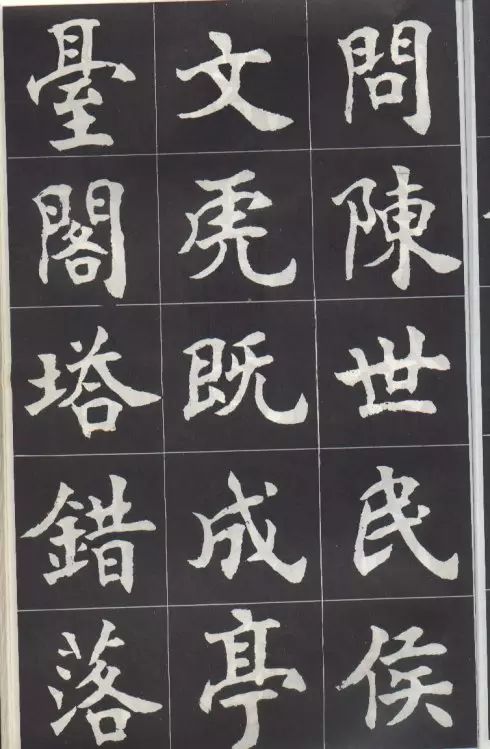 問陳世民侯
文虎既成亭
臺閣塔錯落